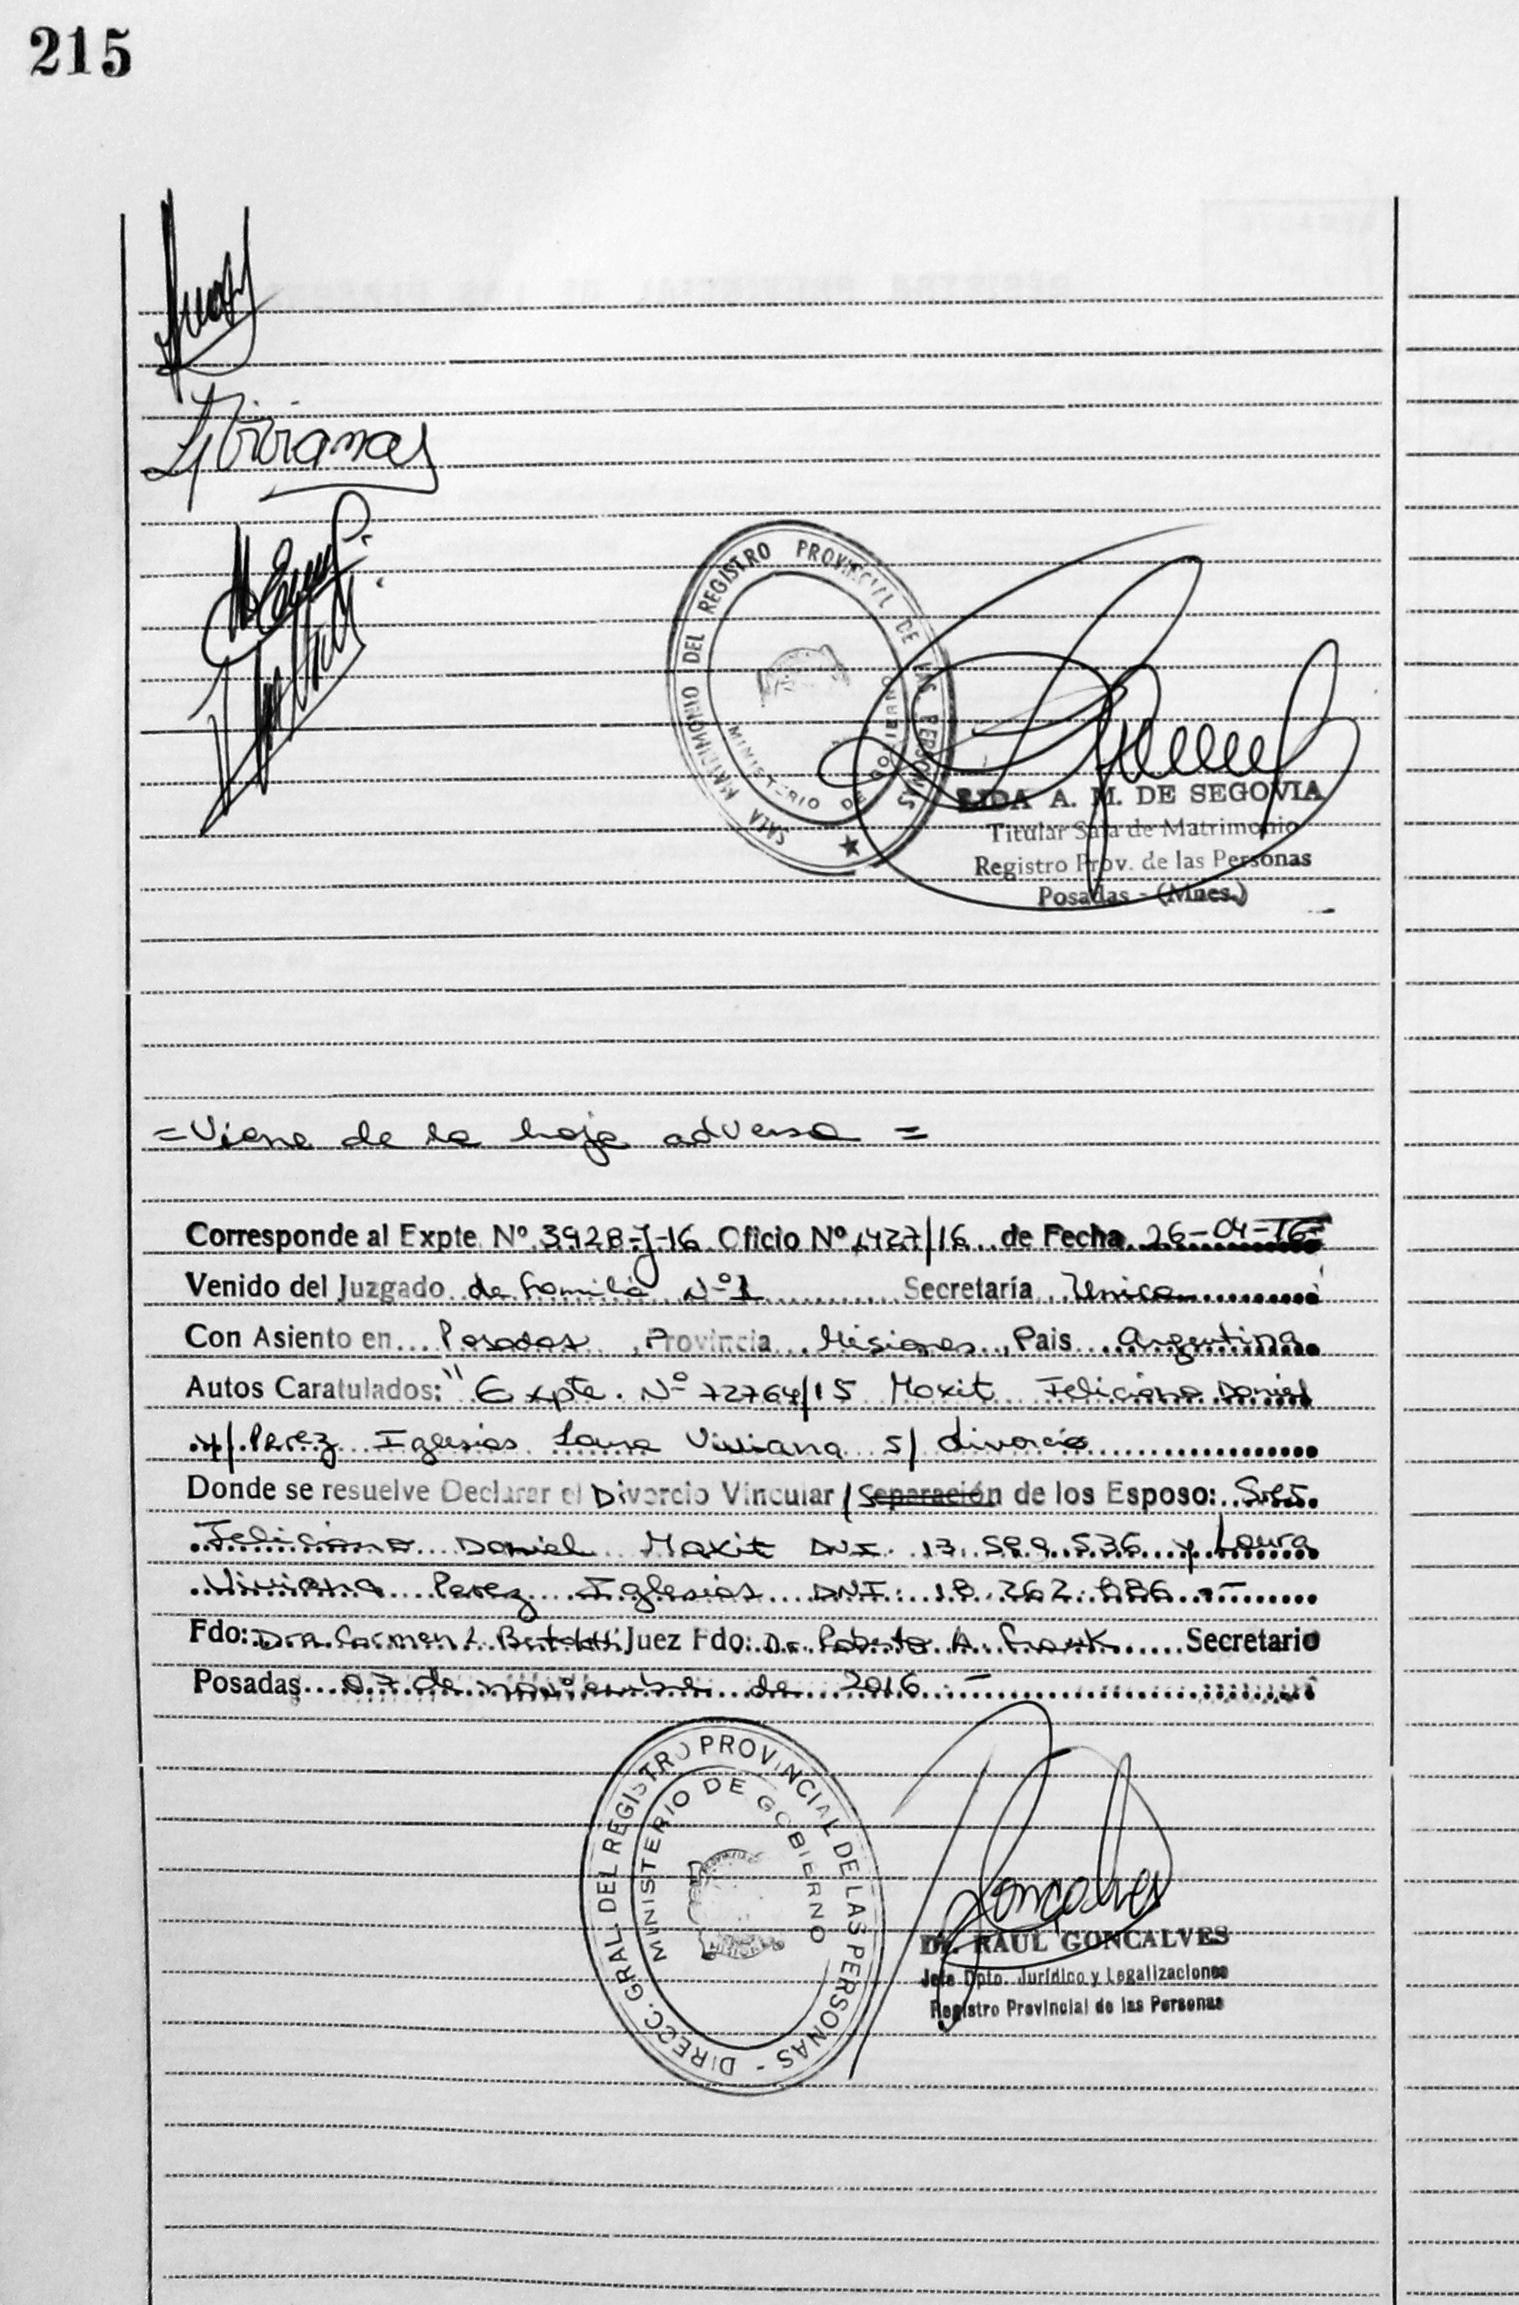 215
Viviana
SALA MATRIMONIO DEL REGISTRO PROVINCIAL DE LAS PERSONAS
MINISTERIO DE GOBIERNO
LIDA A. M. DE SEGOVIA
Titular Sala de Matrimonio
Registro Prov. de las Personas
Posadas - (Mnes.)
= Viene de la hoja adversa =
Corresponde al Expte Nº 3928-J-16 Oficio Nº 1427/16 de Fecha 26-04-16
Venido del Juzgado de Familia Nº 1 Secretaría Unica
Con Asiento en Posadas Provincia Misiones Pais Argentina
Autos Caratulados: "Expte. Nº 72764/15 Moxit Feliciano Daniel
y/ Perez Iglesias Laura Viviana s/ divorcio
Donde se resuelve Declarar el Divorcio Vincular / Separación de los Esposo: Sres
Feliciano Daniel Moxit DNI 17.599.536 y Laura
Viviana Perez Iglesias DNI: 18.262.886 -
Fdo: Dra Carmen L. Juez Fdo: Dr. Roberto A. Secretario
Posadas 07 de noviembre de 2016 -
DIRECC. GRAL. DEL REGISTRO PROVINCIAL DE LAS PERSONAS -
MINISTERIO DE GOBIERNO
Goncalves
Dr. RAUL GONCALVES
Jefe Dpto. Jurídico y Legalizaciones
Registro Provincial de las Personas